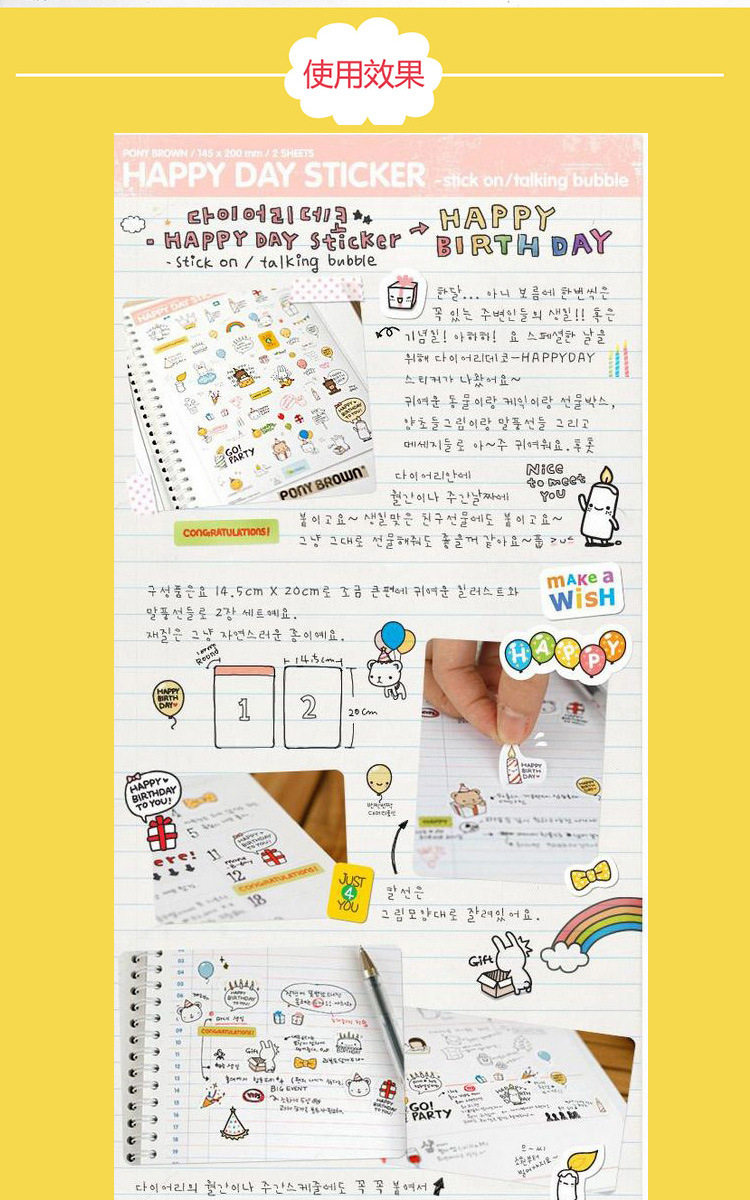 使用效果
PONY BROWN / 145 x 200 mm / 2 SHEETS
HAPPY DAY STICKER -stick on/talking bubble
다이어리데코
HAPPY DAY Sticker
-stick on / talking bubble
HAPPY
BIRTH DAY
한달... 아니 보름에 한번씩은
꼭 있는 주변인들의 생일!! 혹은
기념일! 아하하! 요 스페셜한 날을
위해 다이어리데코-HAPPYDAY
스티커가 나왔어요~
귀여운 동물이랑 케익이랑 선물박스,
양초들그림이랑 말풍선들 그리고
메세지들로 아~주 귀여워요.후훗
GO!
PARTY
HAPPY
BIRTHDAY
PONY BROWN
다이어리안에
월간이나 주간날짜에
붙이고요~ 생일맞은 친구선물에도 붙이고요~
그냥 그대로 선물해줘도 좋을꺼 같아요~훕
Nice
to meet
YOU
CONGRATULATIONS!
구성품은요 14.5cm X 20cm로 조금 큰편에 귀여운 일러스트와
말풍선들로 2장 세트예요.
재질은 그냥 자연스러운 종이예요.
MAKE a
WiSH
HAPPY
Round
14.5cm
1
2
20cm
HAPPY
BIRTH
DAY
HAPPY
BIRTH
DAY
HAPPY
BIRTHDAY
TO YOU!
5
11
12
18
HAPPY
BIRTHDAY
TO YOU!
CONGRATULATIONS!
JUST
4
YOU
칼선은
그림모양대로 잘려있어요.
Gift
HAPPY
BIRTHDAY
TO YOU!
CONGRATULATIONS!
Gift
BIG EVENT
VIPS
GO!
PARTY
다이어리의 월간이나 주간스케줄에도 꼭 꼭 붙여서